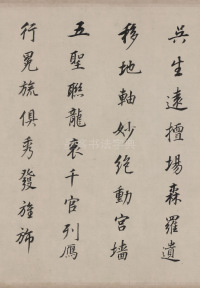 吳生遠擅場森羅遺
移地軸妙絕動宮墻
五聖聯龍衮千官列鴈
行冕旒俱秀發旌旆